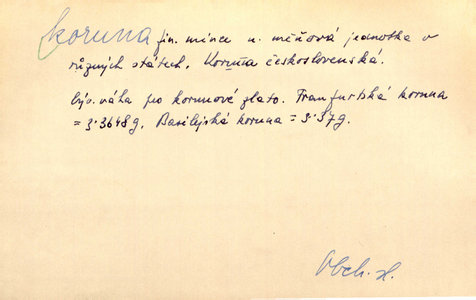 koruna fin. mince n. měnová jednotka v
různých státech. Koruna československá.
býv. váha po korunové zlato. Franfurtská koruna
= 3·3648 g. Basilejská koruna = 3·37 g.
Obch. sl.